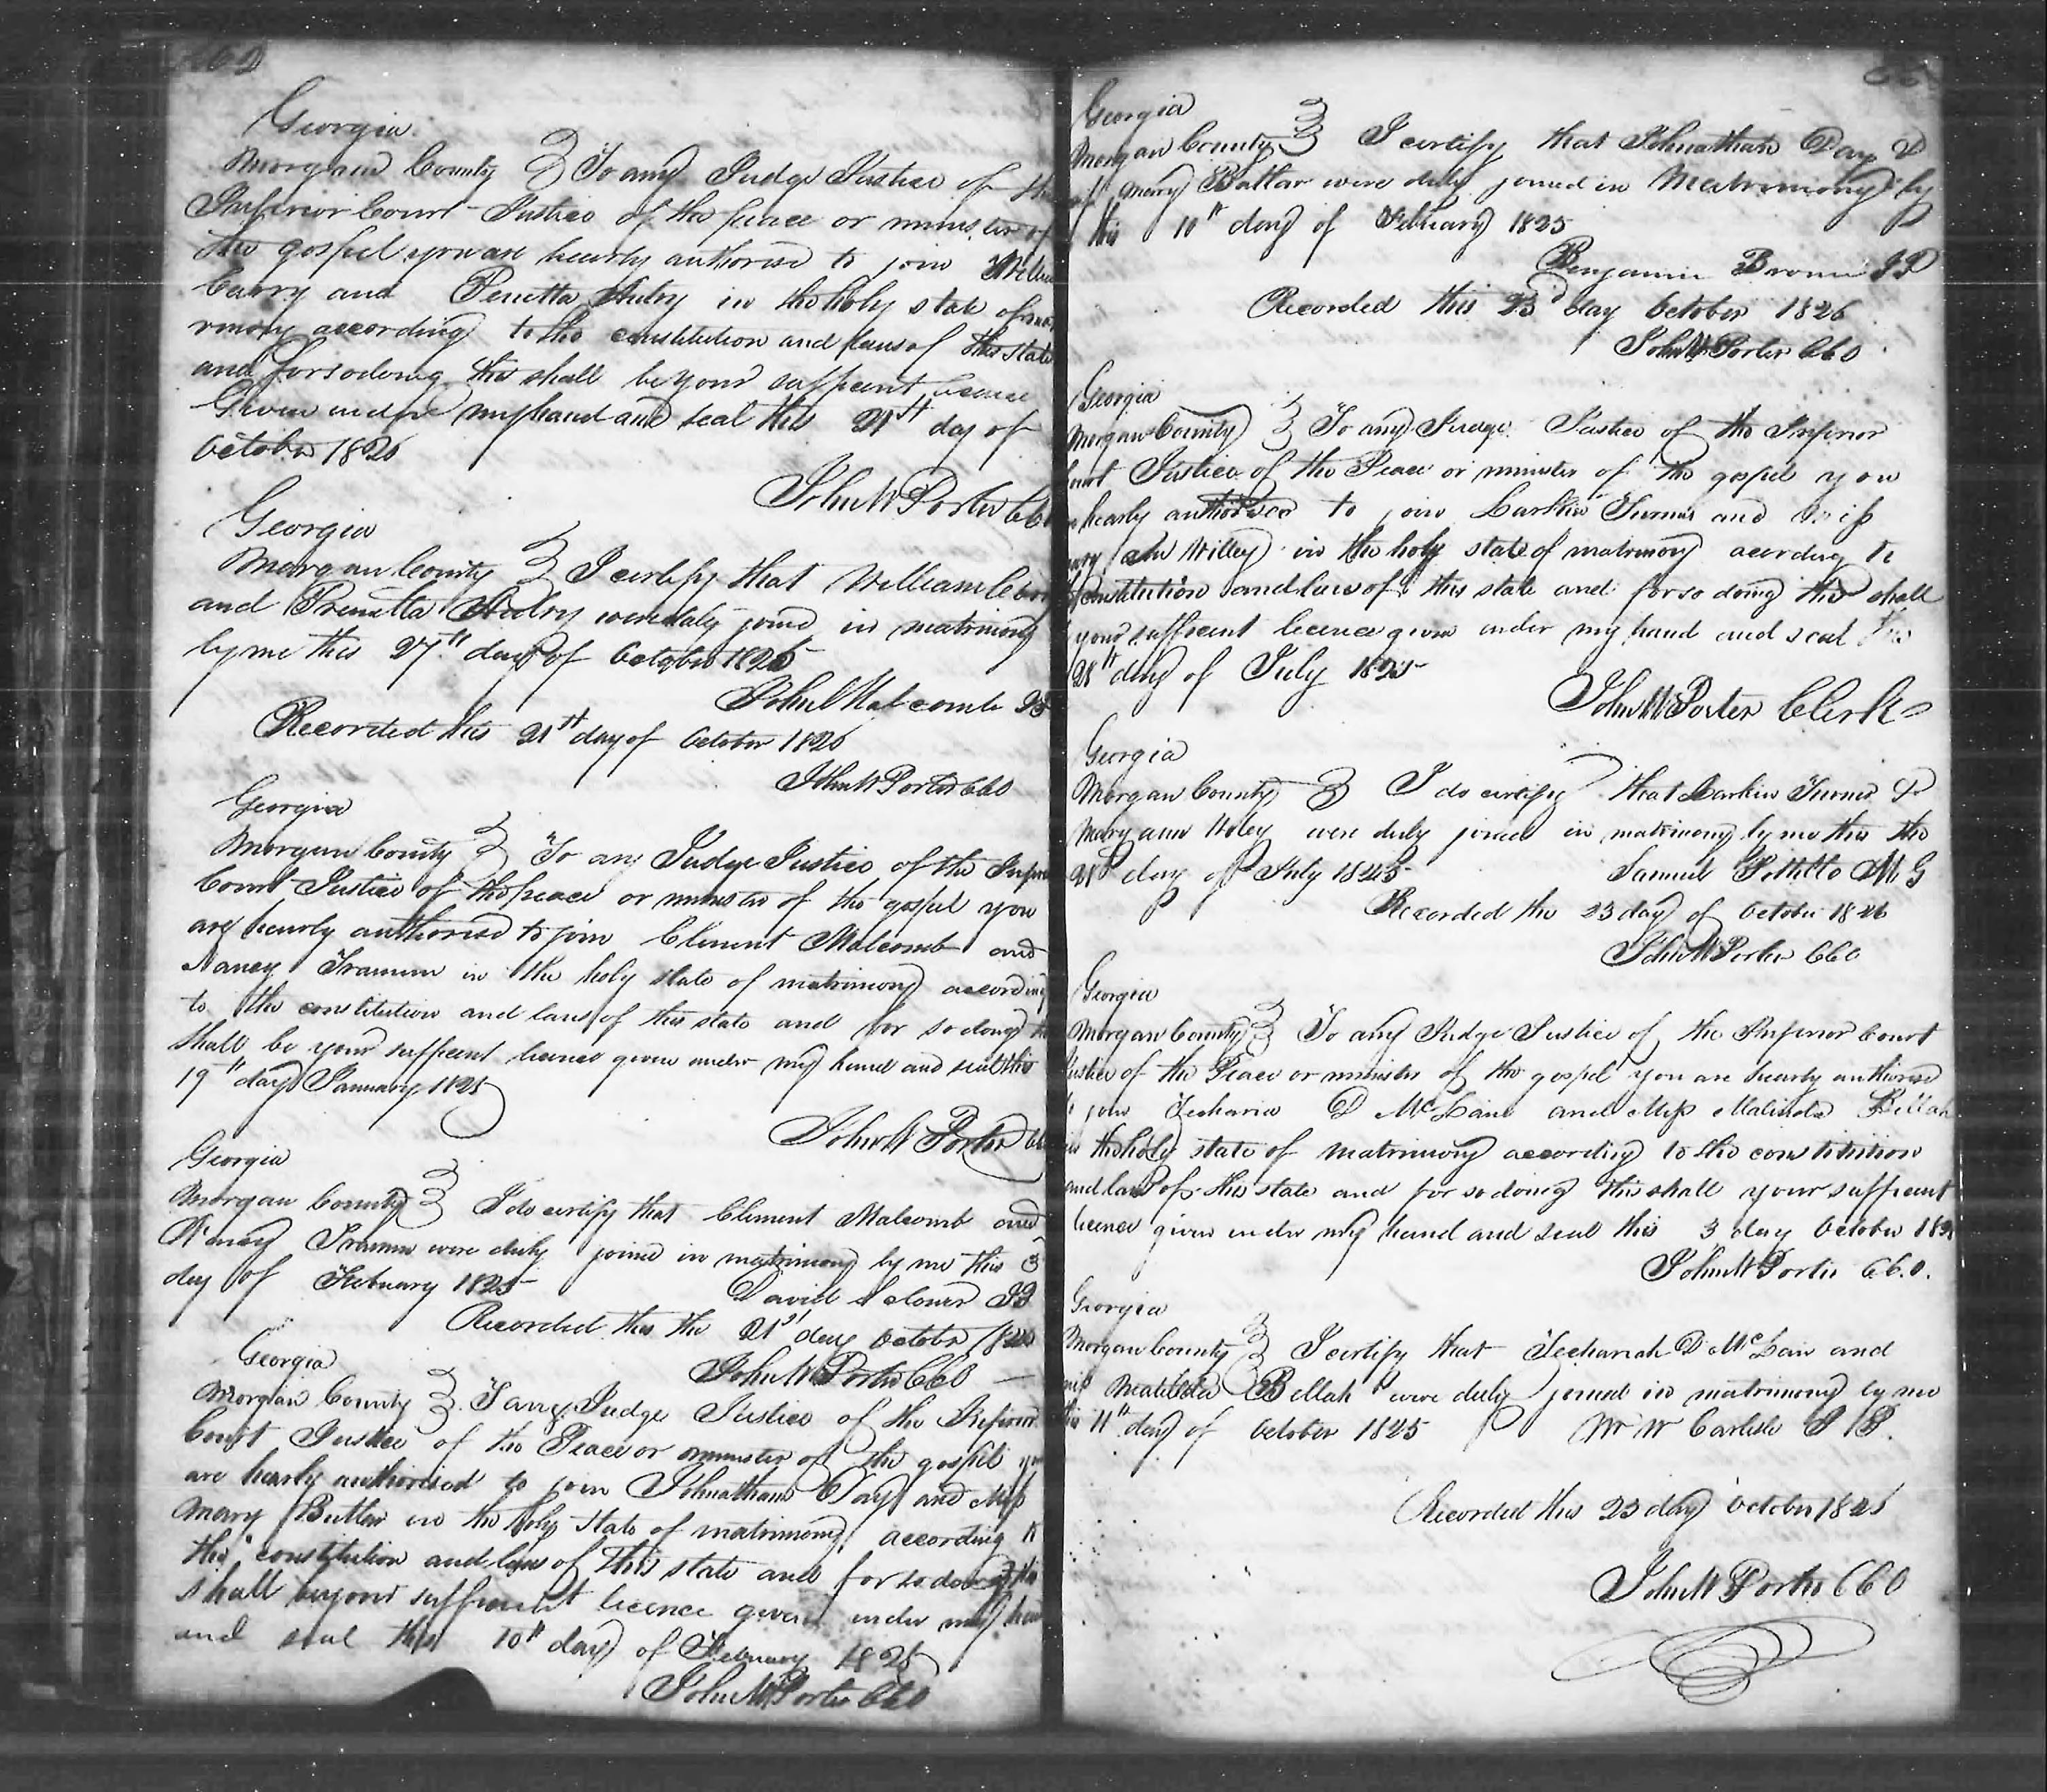 Georgia
Morgan County To any Judge Justice of the
Inferior Court Justice of the peace or minister of
the gospel you are hearly authorised to join
Curry and Penetta Autry in the holy state of
rmony according to the constitution and laws of this state
and for so doing this shall be your suffient licence
Given under my hand and seal this 21st day of
October 1826
John W Porter CCO
Georgia
Morgan County I certify that William
and Autry were duly joind in matrimony
by me this 27th day of October 1825
John Malcomb JP
Recorded this 21st day of October 1826
John W Porter CCO
Georgia
Morgan County To any Judge Justice of the
Court Justice of the peace or minister of the gospel you
are hearly authorised to join Clement Malcomb and
Nancy in the holy state of matrimony according
to the constitution and laws of this state and for so doing
shall be your suffient licence given under my hand and seal this
19th day January 1825
John W Porter
Georgia
Morgan County I do certify that Clement Malcomb and
Nancy were duly joined in matrimony by me this 3
day of February 1825 David JP
Recorded this the 21st day October 1826
John W Porter CCO
Georgia
Morgan County To any Judge Justice of the
Court Justice of the Peace or minister of the gospel
are hearly authorised to join Johnathan Day and Miss
Mary Butlar in the holy state of matrimony according to
the constitution and laws of this state and for so doing this
shall be your suffient licence given under my
and seal this 10th day of February 1825
John W Porter CCO
Georgia
Morgan County I certify that Johnathan Day &
Mary Battar were duly joined in Matrimony by
this 10th day of February 1825
Benjamin Brown JP
Recorded this 23d day October 1826
John W Porter CCO
Georgia
Morgan County To any Judge Justice of the Inferior
Court Justice of the Peace or minister of the gospel you
hearly authorised to join Larkin Turner and Miss
ann Willey in the holy state of matrimony acording to
constitution and laws of this state and for so doing this shall
your suffient licence given under my hand and seal this
28th day of July 1825
John W Porter Clerk
Georgia
Morgan County I do certify that Larkin Turner &
Mary ann were duly joined in matrimony by me this the
day of July 1825 Samuel M G
Recorded the 23 day of October 1826
John W Porter CCO
Georgia
Morgan County To any Judge Justice of the Inferior Court
Justice of the Peace or minister of the gospel you are hearly authorised
to join Zecharia D McLain and Miss Malinda Bellah
the holy state of matrimony according to the constitution
and laws of this state and for so doing this shall your suffient
licence given under my hand and seal this 3 day October
John W Porter C.C.O.
Georgia
Morgan County I certify that Zechariah D McLain and
Matilda Bellah were duly joined in matrimony by me
this 11th day of October 1825 Wm W Carlisle J P.
Recorded this 23 day October 1826
John W Porter CCO